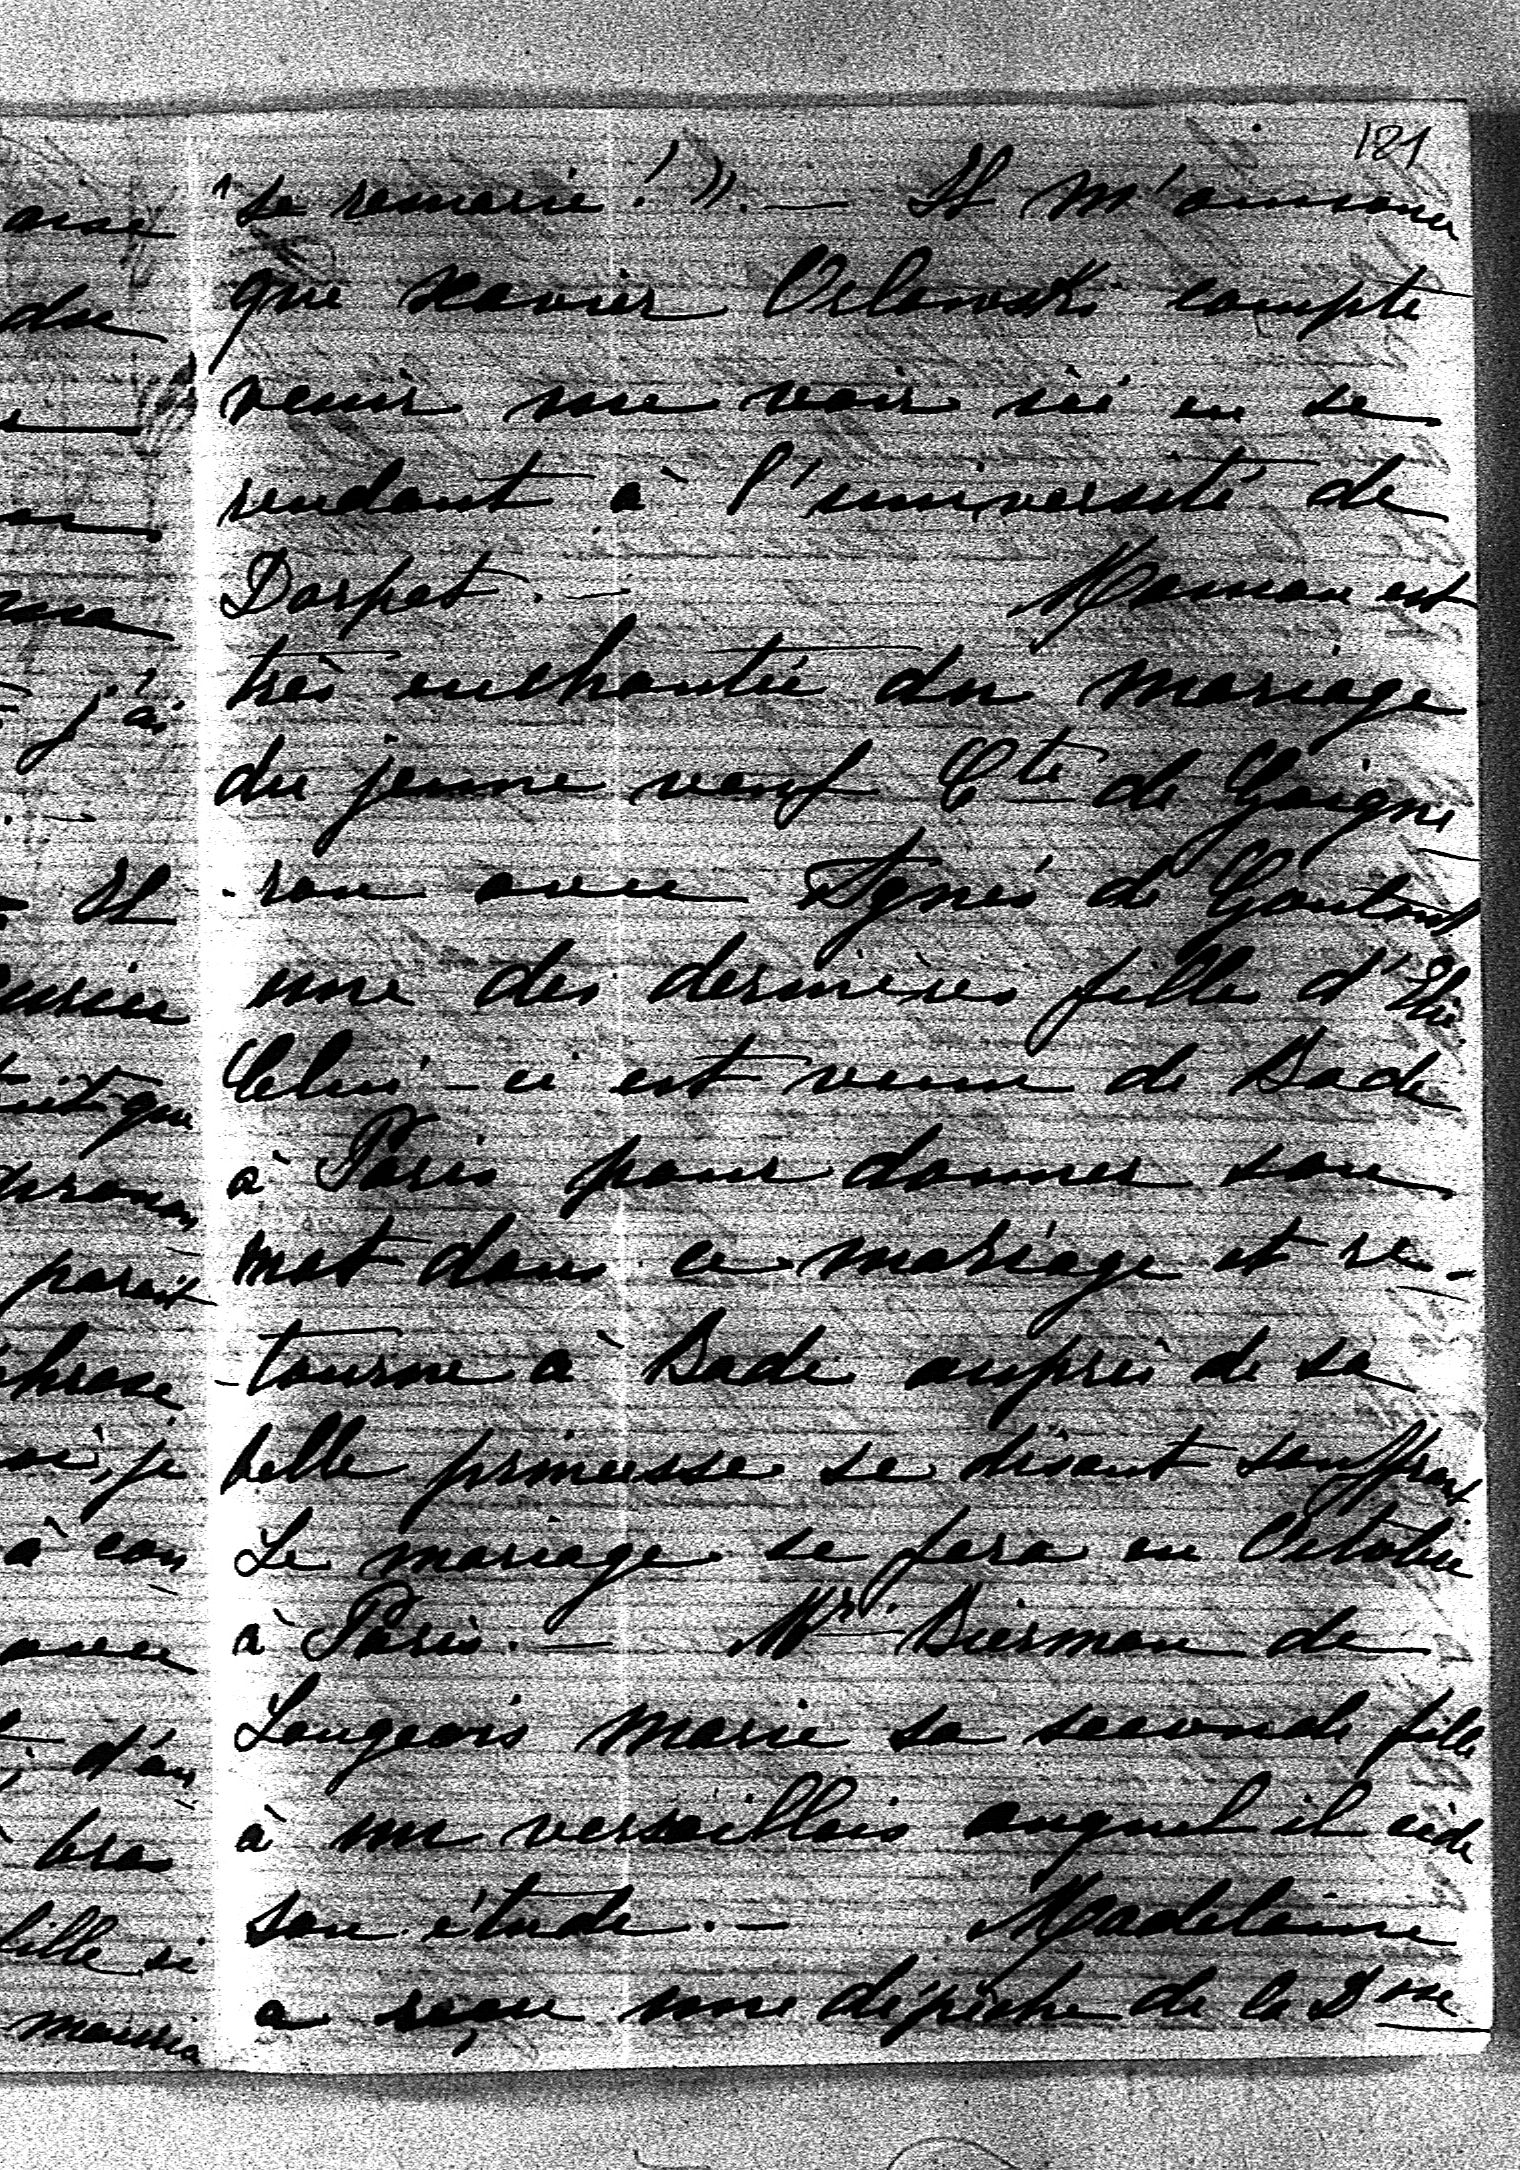 181
"se remarie!". — Il m'annonce
que Xavier Orlowski compte
venir me voir ici en se
rendant à l'université de
Dorpat. — Maman est
très enchantée du mariage
du jeune veuf Cte de Gaigne
-ron avec Agnès de Gontaut
une des dernières filles d'Elie.
Celui-ci est venu de Bade
à Paris pour donner son
mot dans ce mariage et re-
-tourne à Bade auprès de sa
belle princesse se disant souffrant
Le mariage se fera en Octobre
à Paris. — Mr Bierman de
Langeais marie sa seconde fille
à un versaillais auquel il cède
son étude. — Madeleine
a reçu une dépêche de la Dsse